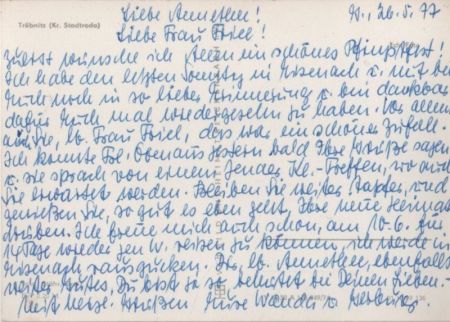 Tröbnitz (Kr. Stadtroda)
W., 26.5.77
Liebe Annethen!
Liebe Frau Friel!
Zuerst wünsche ich Ihnen ein schönes Pfingstfest!
Ich habe den letzten Sonntag in Eisenach u. mit bei
Euch noch in so lieber Erinnerung u. bin dankbar
dafür Euch mal wiedergesehn zu haben. Vor allem
Sie, lb. Frau Friel, das war ein schöner Zufall.
Ich konnte Frl. Obenaus gestern bald Ihre Grüße sagen
u. sie sprach von einem Jenaer Kl.-Treffen, wo auch
Sie erwartet werden. Bleiben Sie weiter tapfer, und
genießen Sie, so gut es eben geht, Ihre neue Heimat
drüben. Ich freue mich auch schon, am 10.6. für
14 Tage wieder gen W. reisen zu können, ich werde in
Eisenach rausgucken. Dir, lb. Annethen, ebenfalls
weiter Gutes. Du bist ja so behütet bei Deinen Lieben.-
Mit herzl. Grüßen Eure Wanda v.